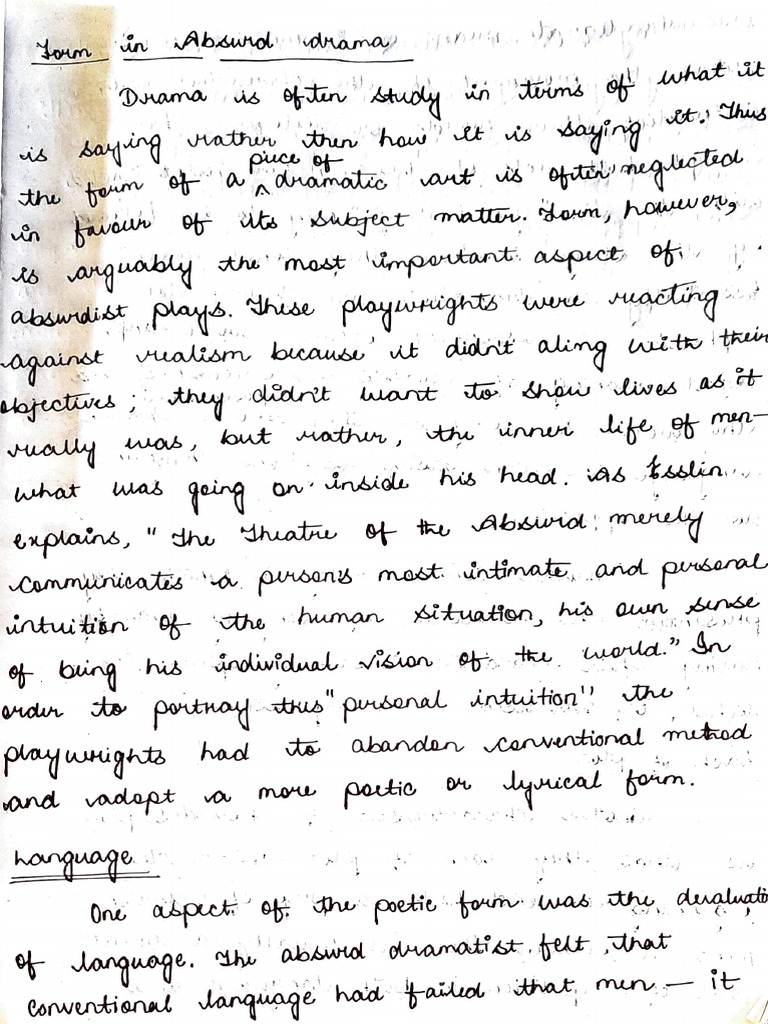 Form in Absurd drama
Drama is often study in terms of what it
is saying rather then how it is saying it. Thus
the form of a piece of dramatic art is often neglected
in favour of its subject matter. Form, however,
is arguably the most important aspect of
absurdist plays. These playwrights were reacting
against realism because it didn't aling with their
objectives; they didn't want to show lives as it
really was, but rather, the inner life of men-
what was going on inside his head. As Esslin
explains, "The Theatre of the Absurd merely
communicates a person's most intimate and personal
intuition of the human situation, his own sense
of being his individual vision of the world." In
order to portray this "personal intuition" the
playwrights had to abandon conventional method
and adopt a more poetic or lyrical form.
Language
One aspect of the poetic form was the devaluatio
of language. The absurd dramatist felt that
conventional language had failed that men — it